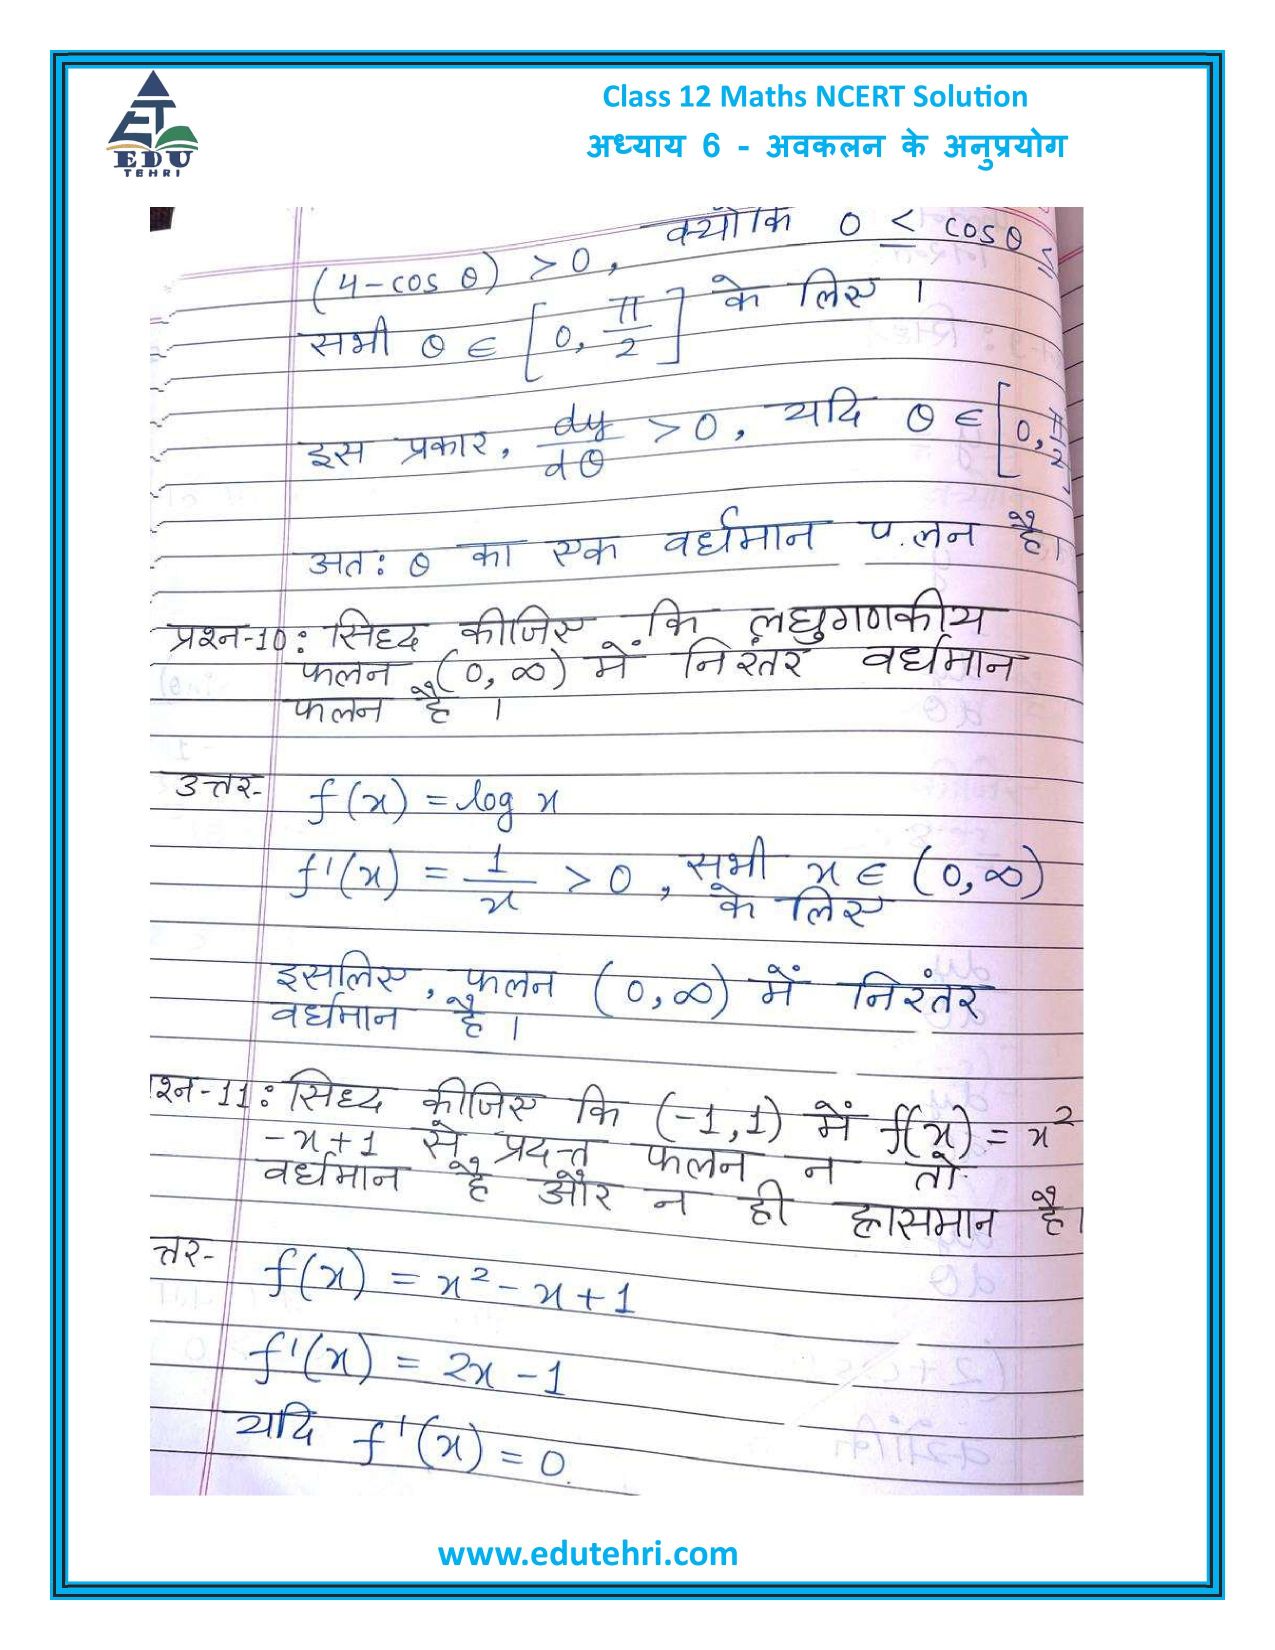 ET
EDU
TEHRI
Class 12 Maths NCERT Solution
अध्याय 6 - अवकलन के अनुप्रयोग
(4-cos θ) > 0, क्योंकि 0 ≤ cosθ ≤
सभी θ ∈ [0, π/2] के लिए ।
इस प्रकार, dy/dθ > 0, यदि θ ∈ [0, π/2]
अतः θ का एक वर्धमान फलन है।
प्रश्न-10: सिध्द कीजिए कि लघुगणकीय
फलन (0, ∞) में निरंतर वर्धमान
फलन है ।
उत्तर- f(x) = log x
f'(x) = 1/x > 0, सभी x ∈ (0, ∞)
के लिए
इसलिए, फलन (0, ∞) में निरंतर
वर्धमान है ।
श्न-11: सिध्द कीजिए कि (-1,1) में f(x) = x²
-x+1 से प्रदत्त फलन न तो
वर्धमान है और न ही ह्रासमान है।
त्तर- f(x) = x² - x + 1
f'(x) = 2x - 1
यदि f'(x) = 0.
www.edutehri.com